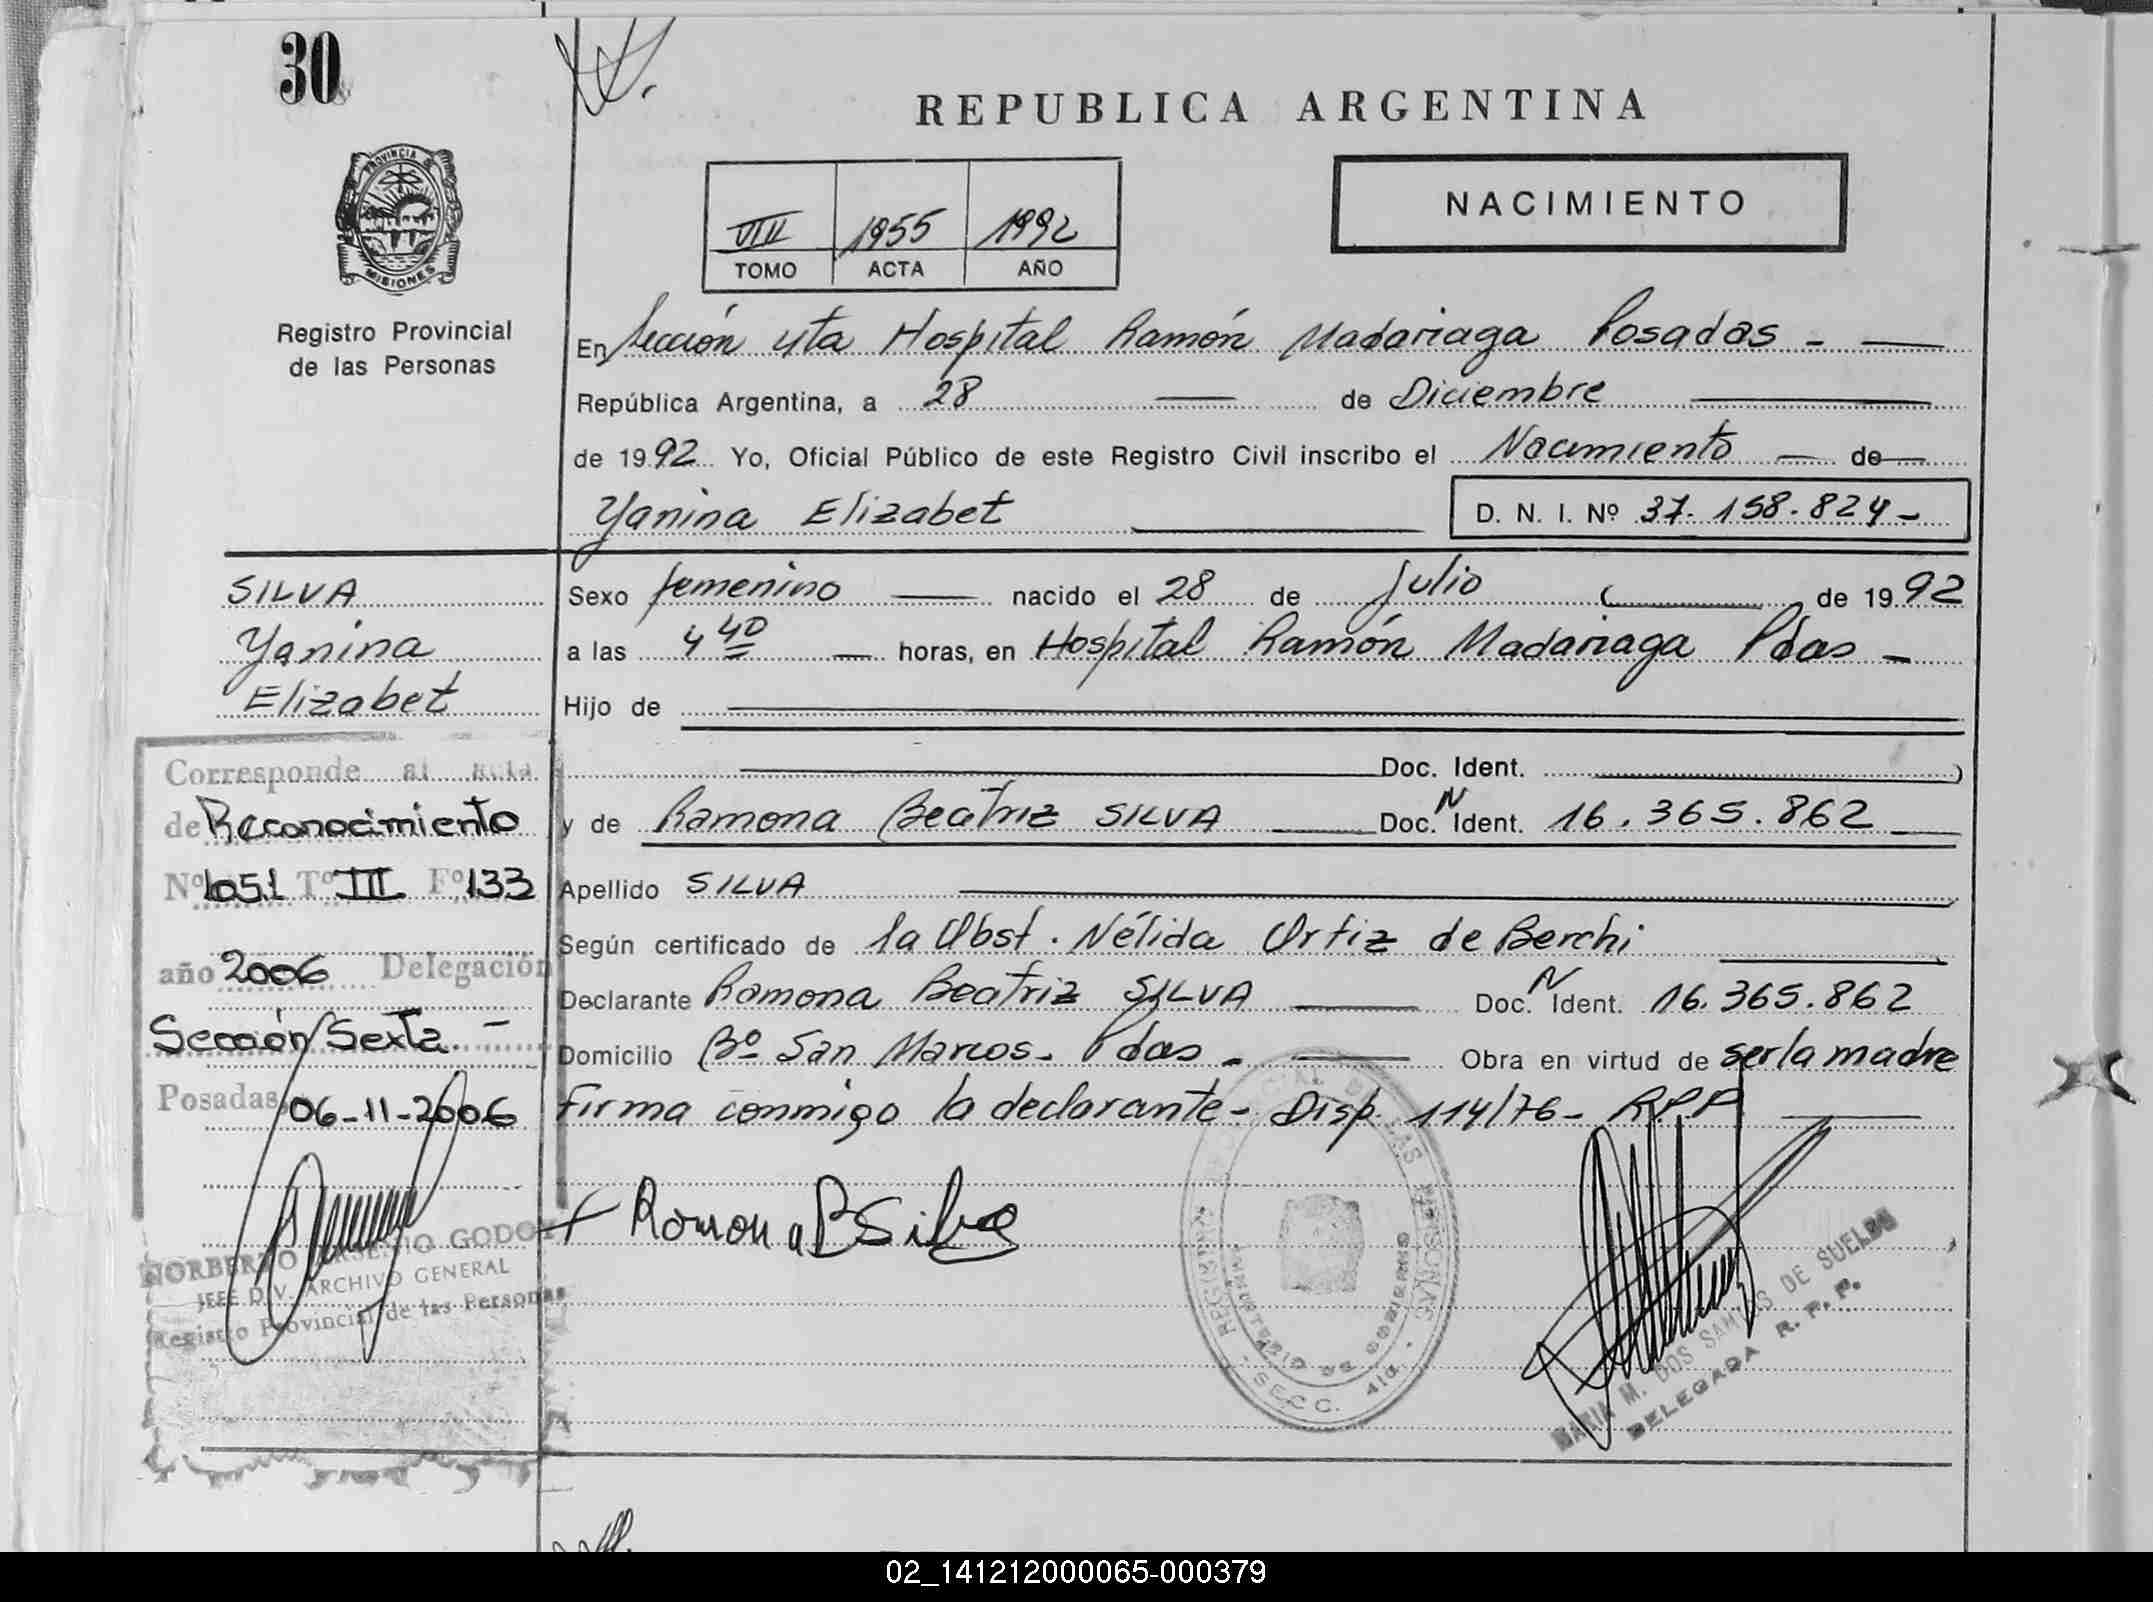 30
REPUBLICA ARGENTINA
PROVINCIA DE
MISIONES
Registro Provincial
de las Personas
VIII 1955 1992
TOMO ACTA AÑO
NACIMIENTO
En Sección 4ta Hospital Ramón Madariaga Posadas -
República Argentina, a 28 de Diciembre
de 1992 Yo, Oficial Público de este Registro Civil inscribo el Nacimiento de
Yanina Elizabet
D. N. I. Nº 37.158.824-
SILVA
Yanina
Elizabet
Sexo femenino nacido el 28 de Julio de 1992
a las 4 40 horas, en Hospital Ramón Madariaga Pdas -
Hijo de
Doc. Ident.
y de Ramona Beatriz SILVA Doc. N Ident. 16.365.862
Apellido SILVA
Según certificado de la Obst. Nélida Ortiz de Berchi
Declarante Ramona Beatriz SILVA Doc. N Ident. 16.365.862
Domicilio Bº San Marcos - Pdas - Obra en virtud de ser la madre
firma conmigo la declarante - Disp. 114/76 - R.P.P
Corresponde al acta
de Reconocimiento
Nº 1051 Tº III Fº 133
año 2006 Delegación
Sección Sexta -
Posadas, 06-11-2006
Ramona B Silva
NORBERTO ARSENIO GODOY
JEFE DIV. ARCHIVO GENERAL
Registro Provincial de las Personas
REGISTRO PROVINCIAL DE LAS PERSONAS
MINISTERIO DE GOBIERNO
SECC. 4ta.
M. DOS SANTOS DE SUELDO
DELEGADA R. P. P.
02_141212000065-000379